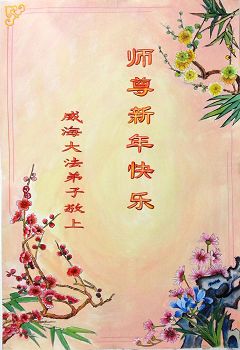 师尊新年快乐
威海大法弟子敬上